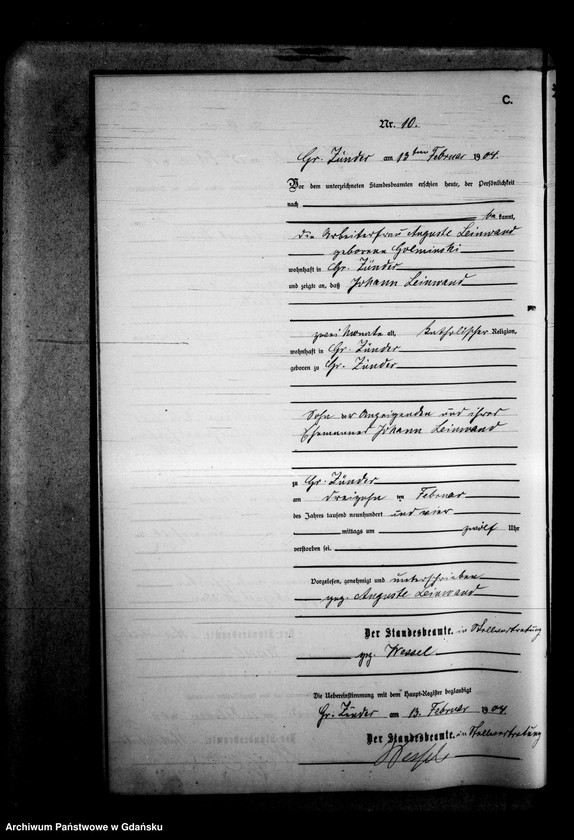 C.
Nr. 10.
Gr. Zünder am 13ten Februar 1904.
Vor dem unterzeichneten Standesbeamten erschien heute, der Persönlichkeit
nach
be kannt,
die Arbeiterfrau Auguste Leinwand
geborene Golminski
wohnhaft in Gr. Zünder
und zeigte an, daß Johann Leinwand
zwei Monate alt, katholischer Religion,
wohnhaft in Gr. Zünder
geboren zu Gr. Zünder
Sohn der Anzeigenden und ihres
Ehemannes Johann Leinwand
zu Gr. Zünder
am dreizehn ten Februar
des Jahres tausend neunhundert und vier
mittags um zwölf Uhr
verstorben sei.
Vorgelesen, genehmigt und unterschrieben
gez. Auguste Leinwand
Der Standesbeamte. in Stellvertretung
gez. Wessel
Die Uebereinstimmung mit dem Haupt-Register beglaubigt
Gr. Zünder am 13. Februar 1904.
Der Standesbeamte. in Stellvertretung
Wessel
Archiwum Państwowe w Gdańsku